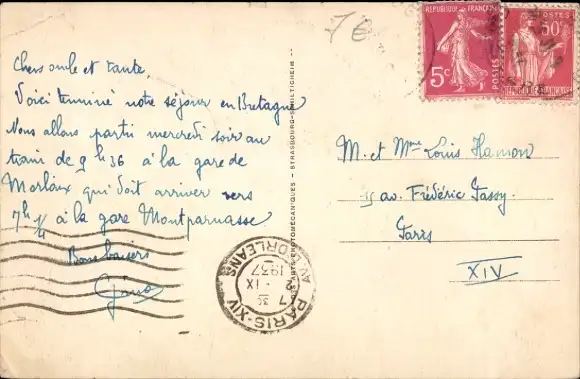 7€
Chers oncle et tante,
Voici terminé notre séjour en Bretagne
Nous allons partir mercredi soir au
train de 9h36 à la gare de
Morlaix qui doit arriver vers
7h ¼ à la gare Montparnasse
Bons baisers
RÉPUBLIQUE FRANÇAISE
5c
POSTES
POSTES
50c
RÉPUBLIQUE FRANÇAISE
STRASBOURG-SCHILTIGHEIM
M. et Mme Louis Hamon
15 av. Frédéric Passy
Paris
XIV
PARIS-XIV
AV. D'ORLEANS
7 35
2 - IX
1937